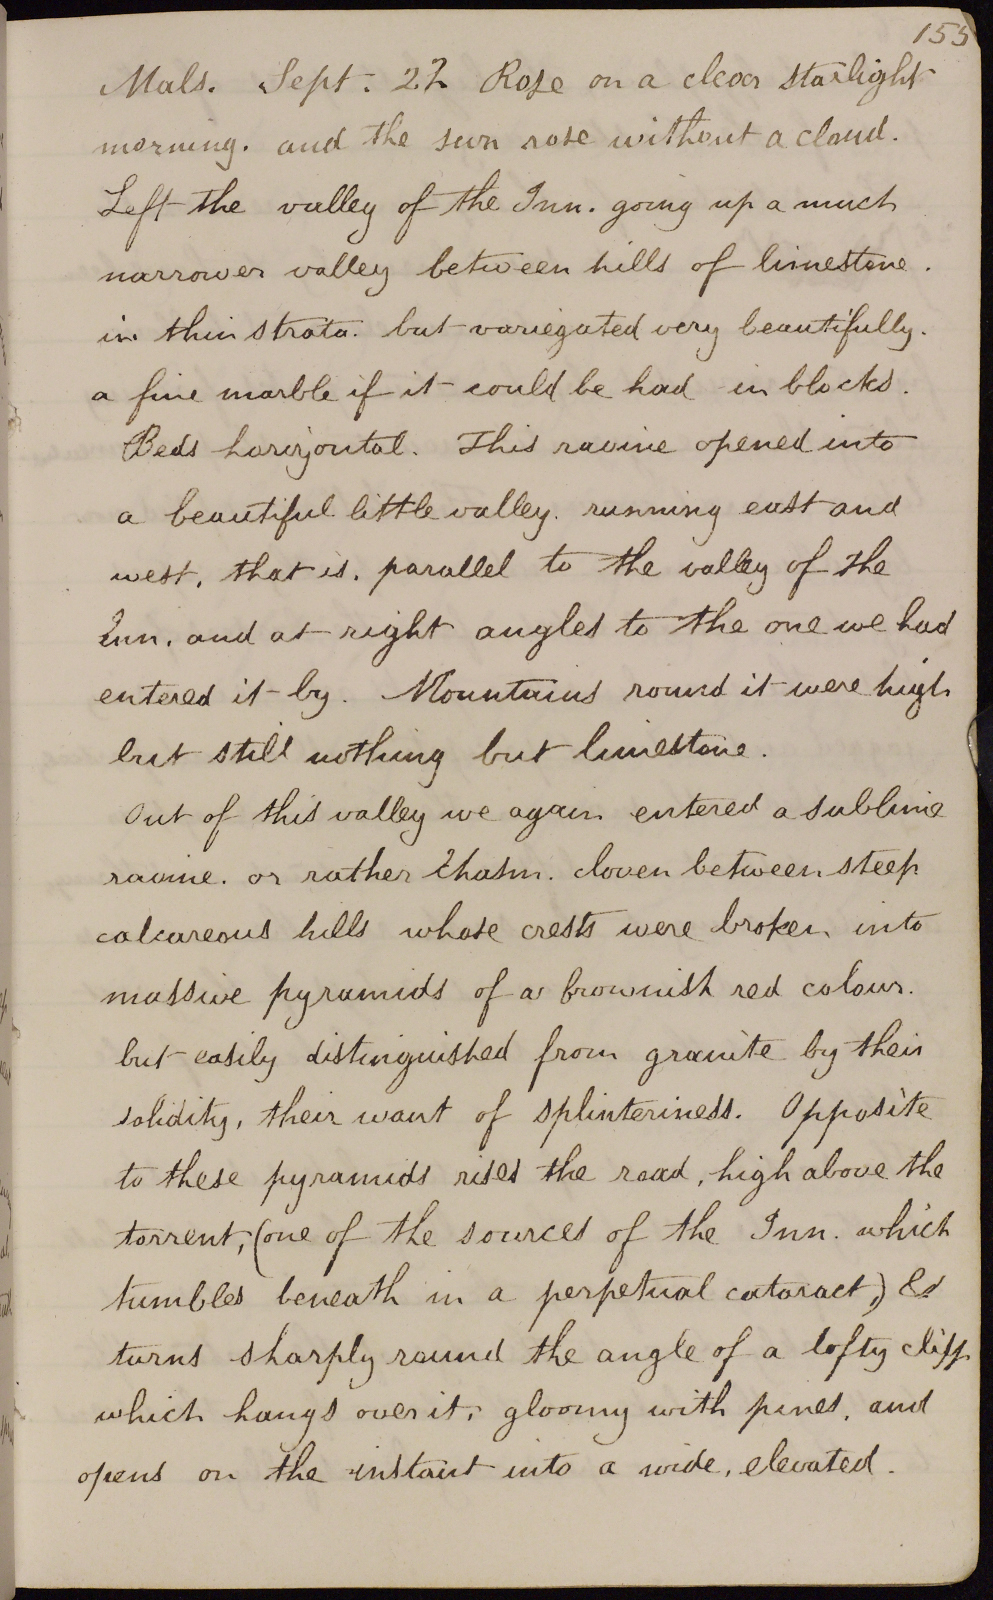 155
Mals. Sept. 22 Rose on a clear starlight
morning. and the sun rose without a cloud.
Left the valley of the Inn. going up a much
narrower valley between hills of limestone.
in thin strata. but variegated very beautifully.
a fine marble if it could be had in blocks.
Beds horizontal. This ravine opened into
a beautiful little valley. running east and
west, that is, parallel to the valley of the
Inn, and at right angles to the one we had
entered it by. Mountains round it were high
but still nothing but limestone.
Out of this valley we again entered a sublime
ravine. or rather Chasm. cloven between steep
calcareous hills whose crests were broken into
massive pyramids of a brownish red colour.
but easily distinguished from granite by their
solidity, their want of splinteriness. Opposite
to these pyramids rises the road, high above the
torrent, (one of the sources of the Inn. which
tumbles beneath in a perpetual cataract,) &
turns sharply round the angle of a lofty cliff
which hangs over it, gloomy with pines, and
opens on the instant into a wide, elevated.